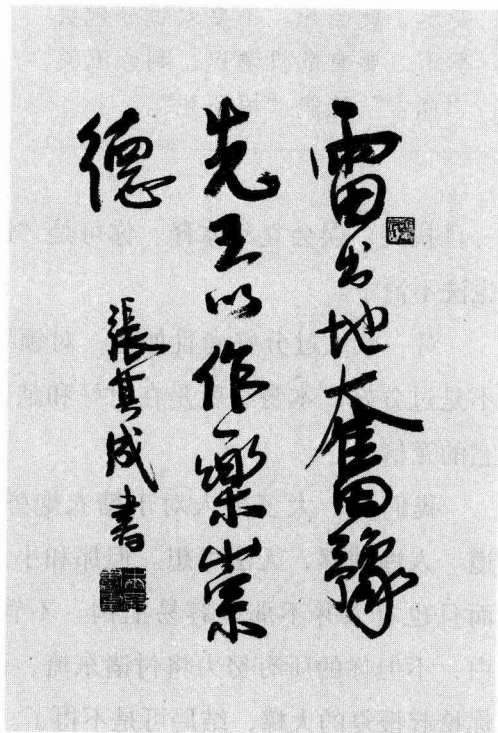 雷出地奮豫
先王以作樂崇
德
張其成書